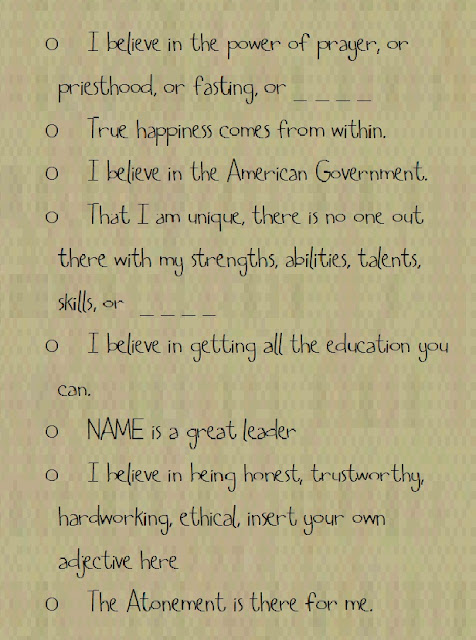 o I believe in the power of prayer, or
priesthood, or fasting, or _ _ _ _
o True happiness comes from within.
o I believe in the American Government.
o That I am unique, there is no one out
there with my strengths, abilities, talents,
skills, or _ _ _ _
o I believe in getting all the education you
can.
o NAME is a great leader
o I believe in being honest, trustworthy,
hardworking, ethical, insert your own
adjective here
o The Atonement is there for me.